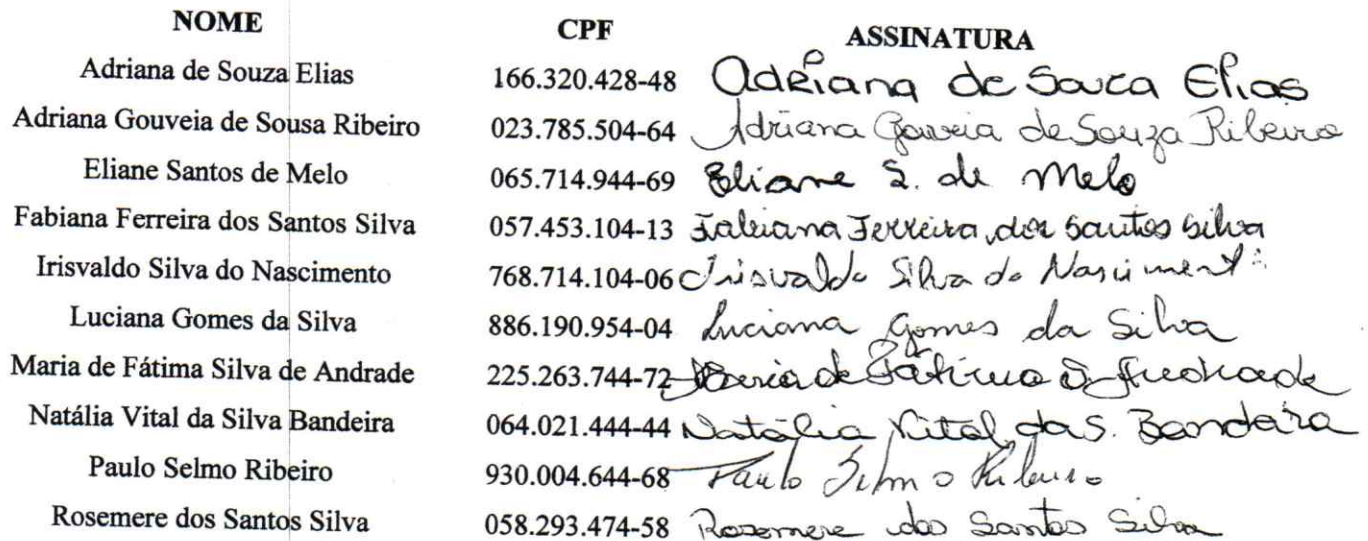 NOME CPF ASSINATURA
Adriana de Souza Elias 166.320.428-48 Adriana de Souza Elias
Adriana Gouveia de Sousa Ribeiro 023.785.504-64 Adriana Gouveia de Souza Ribeiro
Eliane Santos de Melo 065.714.944-69 Eliane S. de Melo
Fabiana Ferreira dos Santos Silva 057.453.104-13 Fabiana Ferreira dos Santos Silva
Irisvaldo Silva do Nascimento 768.714.104-06 Irisvaldo Silva do Nascimento
Luciana Gomes da Silva 886.190.954-04 Luciana Gomes da Silva
Maria de Fátima Silva de Andrade 225.263.744-72 Maria de Fátima S. Andrade
Natália Vital da Silva Bandeira 064.021.444-44 Natália Vital da S. Bandeira
Paulo Selmo Ribeiro 930.004.644-68 Paulo Selmo Ribeiro
Rosemere dos Santos Silva 058.293.474-58 Rosemere dos Santos Silva